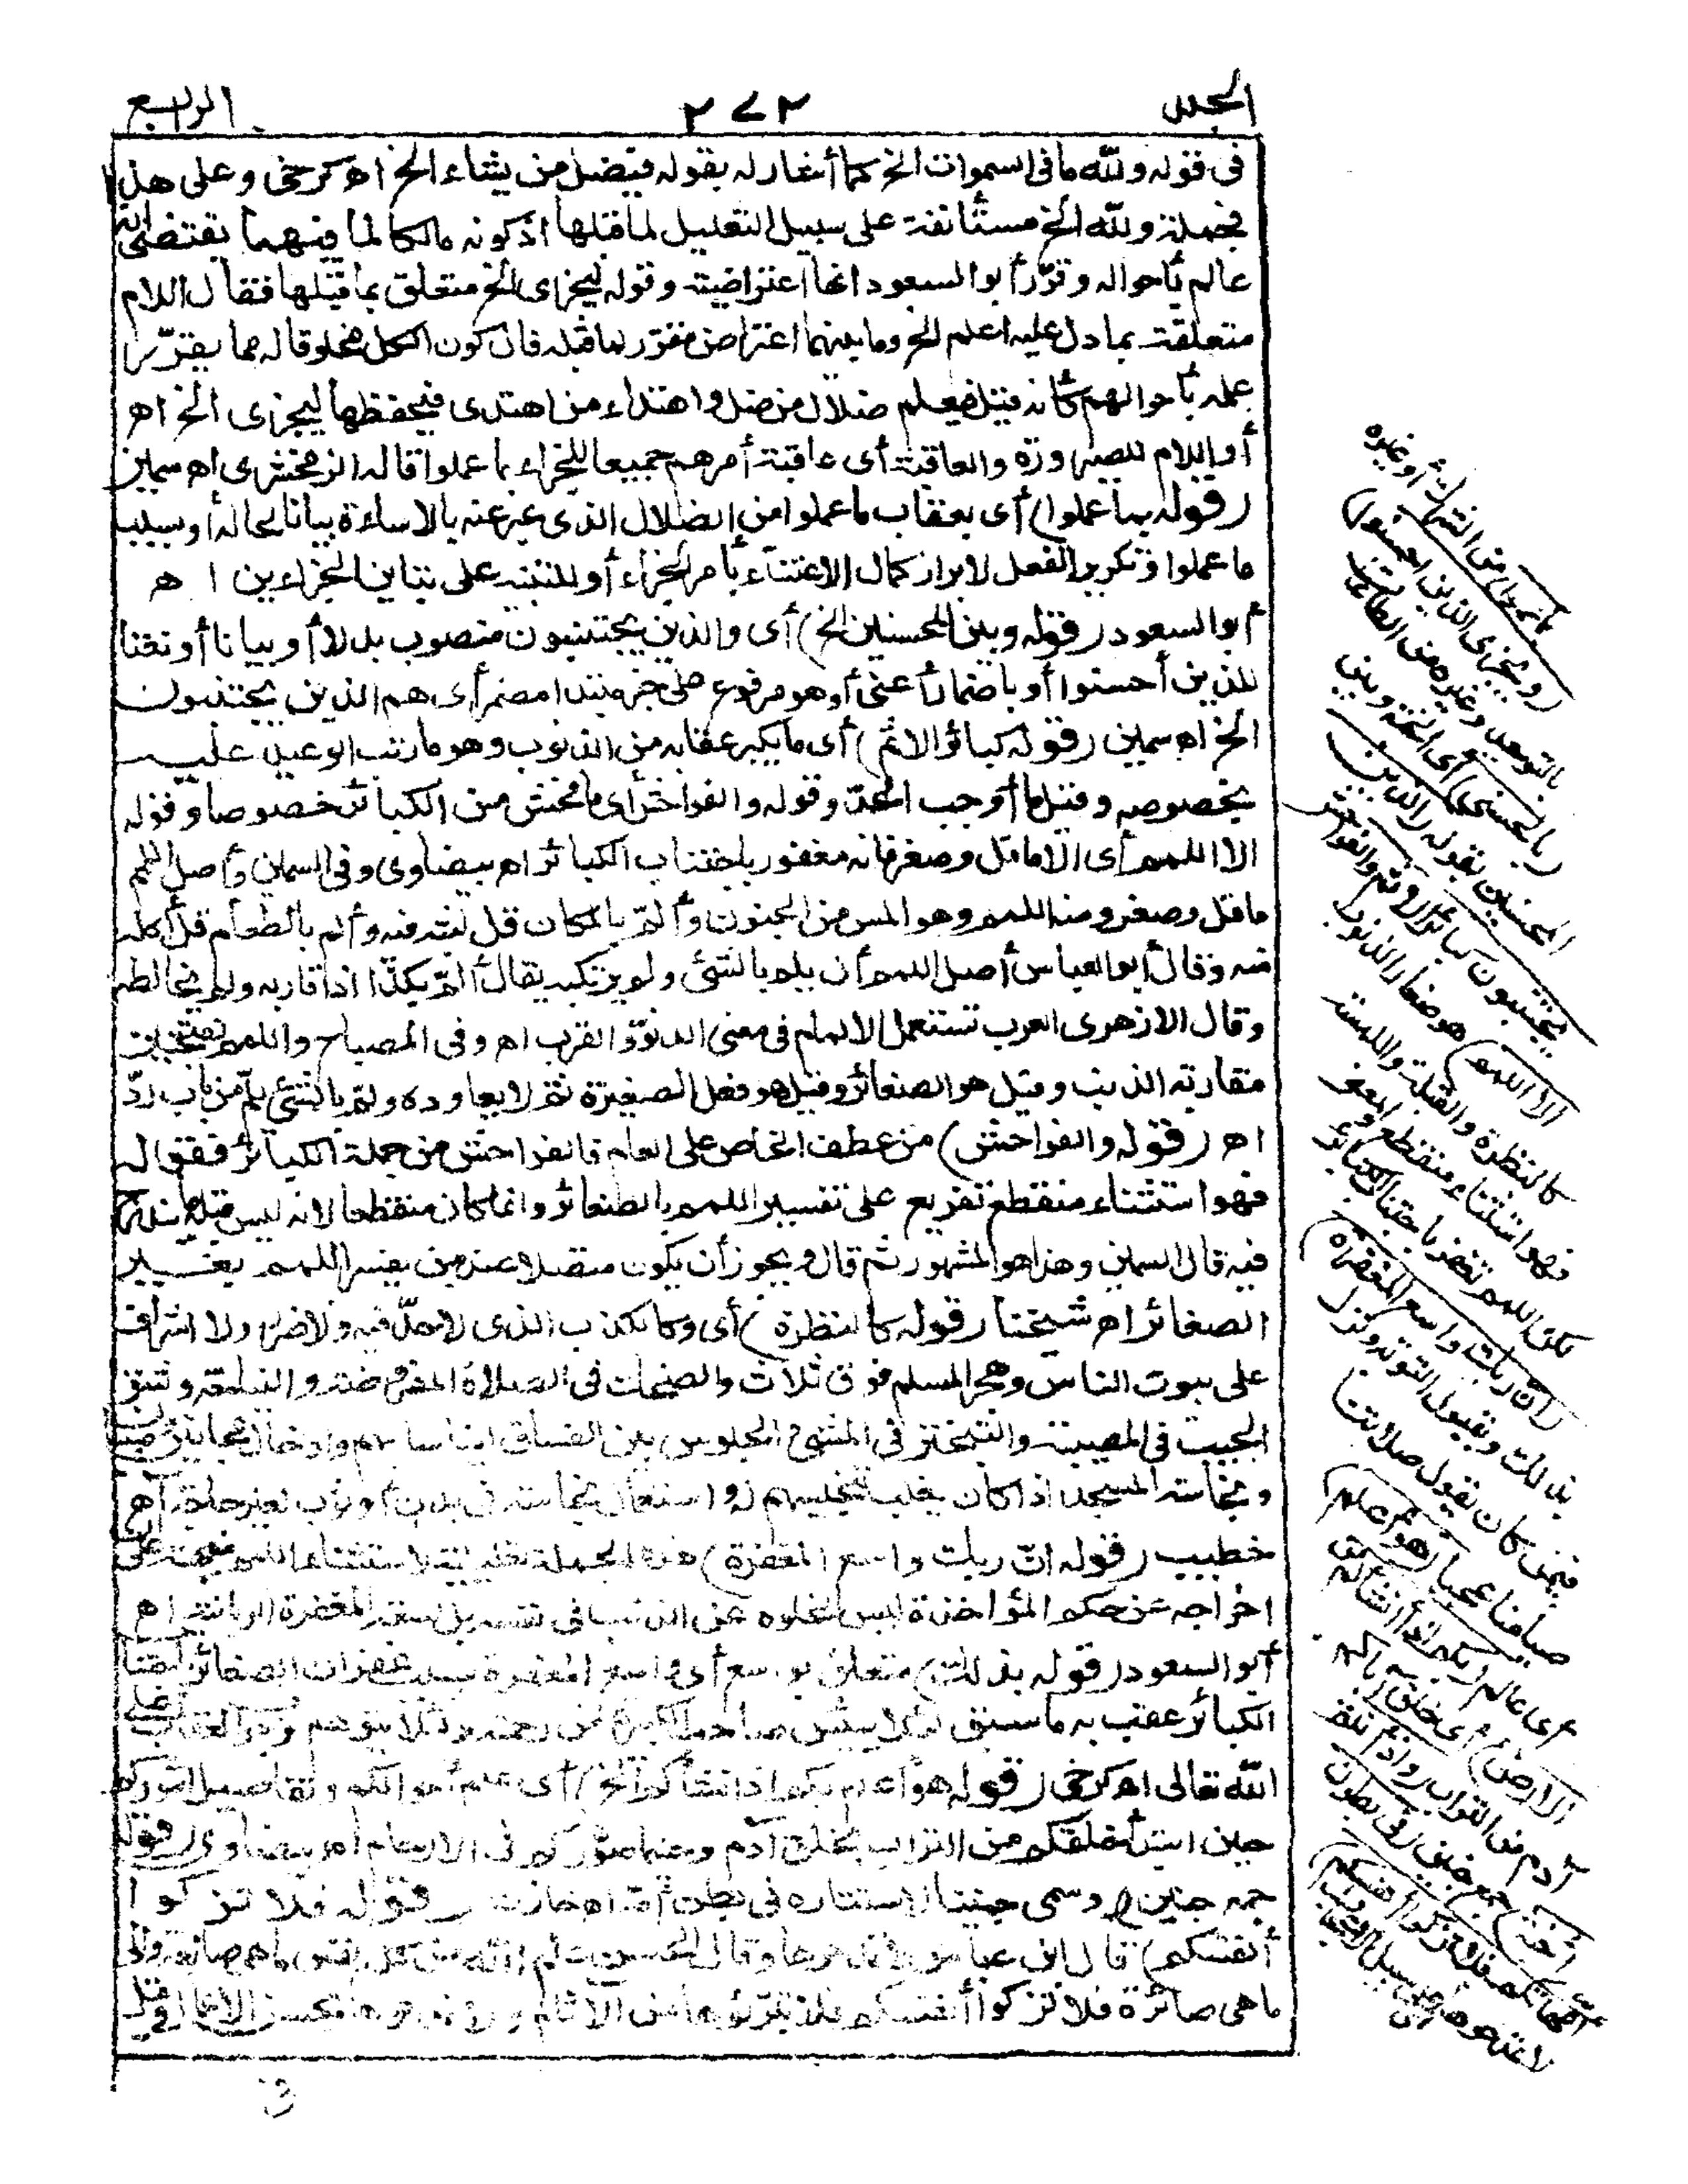 المجلد
٢٧٢
الرابع
فى قوله ولله ما فى السموات الخ كما أشار له بقوله فيضل من يشاء الخ اه كرخى وعلى هذا
فجملة ولله الخ مستأنفة على سبيل التعليل لما قبلها اذ كونه مالكا لما فيهما يقتضى أنه
عالم بأحواله وقرّر أبو السعود انها اعتراضية وقوله ليجزى الخ متعلق بما قبلها فقال اللام
متعلقة بما دل عليه اعلم الخ وما بينهما اعتراض مقرر لما قبله فان كون الكل مخلوقا له مما يقرّر
علمه بأحوالهم كأنه قيل فيعلم ضلال من ضل واهتداء من اهتدى فيحفظها ليجزى الخ اه
أو اللام للصيرورة والعاقبة أى عاقبة أمرهم جميعا للجزاء بما عملوا قاله الزمخشرى اه سمين
(قوله بما عملوا) أى بعقاب ما عملوا من الضلال الذى عبر عنه بالاساءة بيانا لحاله أو بسبب
ما عملوا وتكرير الفعل لابراز كمال الاعتناء بأمر الجزاء أو للتنبيه على تباين الجزاءين ا ه
أبو السعود (قوله وبين المحسنين الخ) أى والذين يجتنبون منصوب بدلا أو بيانا أو نعتا
للذين أحسنوا أو باضمار أعنى أو هو مرفوع على خبر مبتدا مضمر أى هم الذين يجتنبون
الخ اه سمين (قوله كبائر الاثم) أى ما يكبر عقابه من الذنوب وهو ما رتب الوعيد عليه
بخصوصه وقيل ما أوجب الحدّ وقوله والفواحش أى ما فحش من الكبائر خصوصا وقوله
الا اللمم أى الا ما قل وصغر فانه مغفور باجتناب الكبائر اه بيضاوى وفى السمين وأصل اللمم
ما قل وصغر ومنه اللمم وهو المس من الجنون وألمّ بالمكان قل لبثه فيه وألم بالطعام قل أكله
منه وقال أبو العباس أصل اللمم أن يلم بالشئ ولم يرتكبه يقال ألمّ بكذا اذا قاربه ولم يخالطه
وقال الازهرى العرب تستعمل الالمام فى معنى الدنوّ والقرب اه وفى المصباح واللمم بفتحتين
مقاربة الذنب وقيل هو الصغائر وقيل هو فعل الصغيرة ثم لا يعاوده ولمّ بالشئ يلمّ من باب ردّ
اه (قوله والفواحش) من عطف الخاص على العام فالفواحش من جملة الكبائر فقوله
فهو استثناء منقطع تفريع على تفسير اللمم بالصغائر وانما كان منقطعا لانه ليس قبله ما يندرج
فيه قال السمين وهذا هو المشهور ثم قال ويجوز أن يكون متصلا عند من يفسر اللمم بغير
الصغائر اه شيخنا (قوله كالنظرة) أى وكالكذب الذى لا حدّ فيه ولا ضرر ولا اشراف
على بيوت الناس وهجر المسلم فوق ثلاث والضحك فى الصلاة المفروضة والنياحة وشق
الجيب فى المصيبة والتبختر فى المشى والجلوس بين الفساق ايناسا بهم وادخال مجانين وصبيان
ونجاسة المسجد اذا كان يغلب تنجيسهم له واستعمال نجاسة فى بدن أو ثوب لغير حاجة اه
خطيب (قوله ان ربك واسع المغفرة) هذه الجملة تعليلية لاستثناء اللمم وتنبيه على أن
اخراجه عن حكم المؤاخذة ليس لخلوه عن الذنب فى نفسه بل لسعة المغفرة الربانية اه
أبو السعود (قوله بذلك) متعلق بواسع أى واسع المغفرة بسبب غفران الصغائر باجتناب
الكبائر عقب به ما سبق لئلا ييئس صاحب الكبيرة من رحمته ولئلا يتوهم وجوب العقاب على
الله تعالى اه كرخى (قوله هو أعلم بكم اذ أنشأكم الخ) أى علم أحوالكم وتفاصيل أموركم
حين ابتدأ خلقكم من التراب بخلق آدم وحينما صوّركم فى الارحام اه بيضاوى (قوله
جمع جنين) وسمى جنينا لاستتاره فى بطن أمه اه خازن (قوله فلا تزكوا
أنفسكم) قال ابن عباس لا تمدحوها وقال الحسن علم الله من كل نفس ما هى صانعة والى
ما هى صائرة فلا تزكوا أنفسكم فلا تبرّئوها من الآثام ولا تمدحوها بحسن الاعمال وقيل
بما عملوا) من الشرك أو غيره
(ويجزى الذين أحسنوا)
بالتوحيد وغيره من الطاعات
(بالحسنى) أى الجنة وبين
المحسنين بقوله (الذين
يجتنبون كبائر الاثم والفواحش
الا اللمم) هو صغار الذنوب
كالنظرة والقبلة واللمسة
فهو استثناء منقطع والمعنى
لكن اللمم يغفر باجتناب الكبائر
(ان ربك واسع المغفرة)
بذلك وبقبول التوبة ونزل
فيمن كان يقول صلاتنا
صيامنا حجنا (هو أعلم)
أى عالم (بكم اذ أنشأكم من
الارض) أى خلق أباكم
آدم من التراب (واذ أنتم
أجنة) جمع جنين (فى بطون
أمهاتكم فلا تزكوا أنفسكم)
لا تمدحوها على سبيل الاعجاب